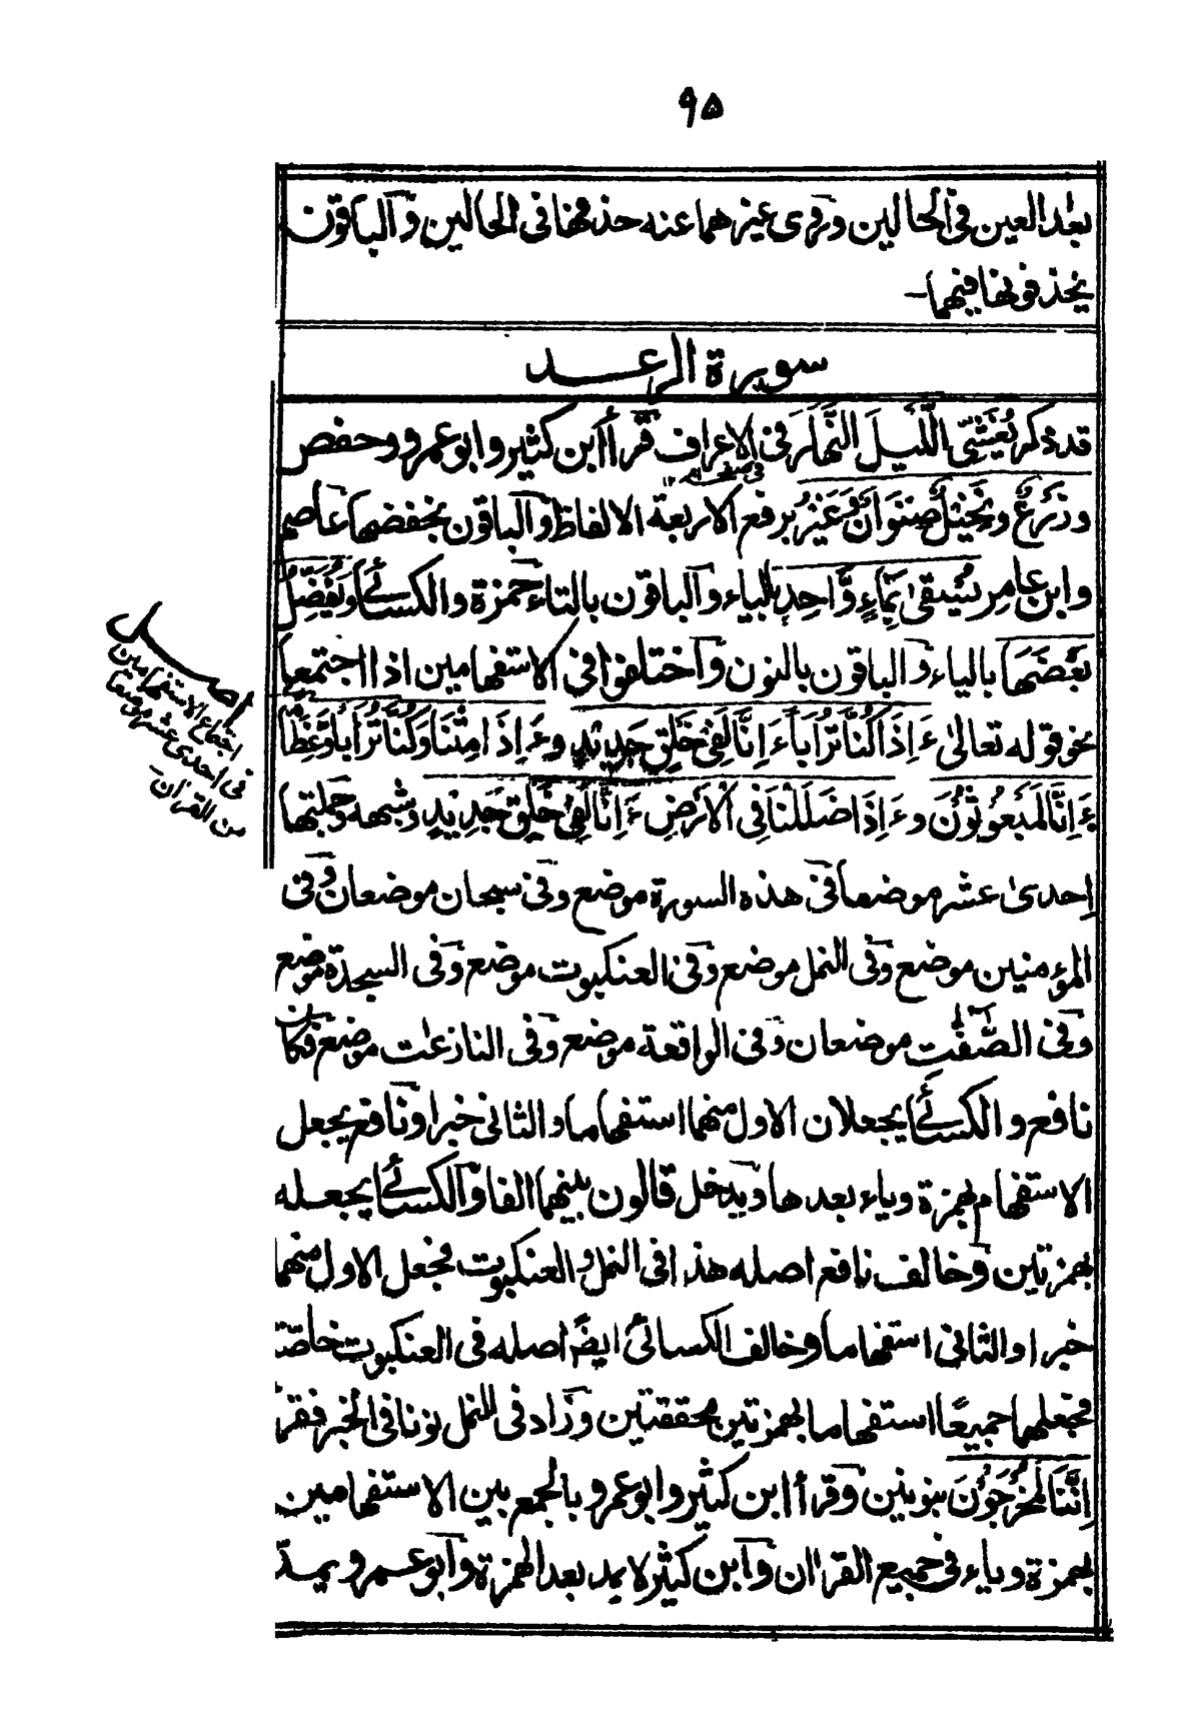 ٩٥
بعد العين فى الحالين وروى غيرهما عنه حذفها فى الحالين والباقون
يحذفونها فيهما-
سورة الرعد
قد ذكر يُغْشِى الَّيْلَ النَّهَارَ فى الاعراف قرأ ابن كثير وابو عمرو وحفص
وزَرْعٌ ونَخِيْلٌ صِنْوَانٌ وَغَيْرُ برفع الاربعة الالفاظ والباقون بخفضها عاصم
وابن عامر يُسْقىٰ بِمَاءٍ وَّاحِدٍ بالياء والباقون بالتاء حمزة والكسائى ويُفَضِّلُ
بَعْضَهَا بالياء والباقون بالنون واختلفوا فى الاستفهامين اذا اجتمعا
نحو قوله تعالىٰ ءَاِذَا كُنَّا تُرَابًا ءَاِنَّا لَفِىْ خَلْقٍ جَدِيْدٍ وءَاِذَا مِتْنَا وَكُنَّا تُرَابًا وَّعِظَامًا
ءَاِنَّا لَمَبْعُوْثُوْنَ وءَاِذَا ضَلَلْنَا فِى الْاَرْضِ ءَاِنَّا لَفِىْ خَلْقٍ جَدِيْدٍ وشبهه وجملتها
اِحدىٰ عشر موضعا فى هذه السورة موضع وفى سبحان موضعان وفى
المؤمنين موضع وفى النمل موضع وفى العنكبوت موضع وفى السجدة موضع
وفى الصّٰفّٰت موضعان وفى الواقعة موضع وفى النازعٰت موضع فكان
نافع والكسائى يجعلان الاول منهما استفهاما والثانى خبرا ونافع يجعل
الاستفهام بهمزة وياء بعدها ويدخل قالون بينهما الفا والكسائى يجعله
بهمزتين وخالف نافع اصله هذا فى النمل والعنكبوت فجعل الاول منهما
خبرا والثانى استفهاما وخالف الكسائى ايضًا اصله فى العنكبوت خاصّة
فجعلهما جميعًا استفهاما بهمزتين محققتين وزاد فى النمل نونا فى الخبر فقرأ
اِنَّنَا لَمُخْرَجُوْنَ بنونين وقرأ ابن كثير وابو عمرو بالجمع بين الاستفهامين
بهمزة وياء فى جميع القراٰن وابن كثير لا يمد بعد الهمزة وابو عمرو يمدّ
اصل
اجتماع الاستفهامين
فى احدى عشر موضعا
من القراٰن-